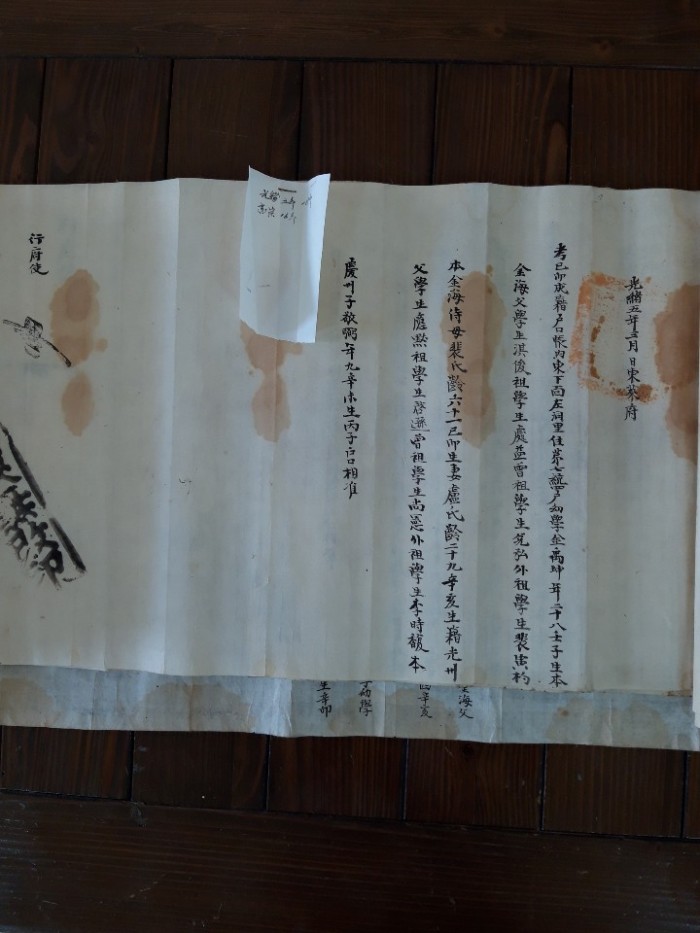 光緒五年三月日東萊府
考己卯成籍戶口帳內東下面左洞里住第七統 戶幼學金禹坤年二十八壬子生本
金海父學生淇俊祖學生處並曾祖學生 弘外祖學生裴寅杓
本金海侍母裴氏齡六十一己卯生妻盧氏齡二十九辛亥生籍光州
父學生處默祖學生啓遜曾祖學生尚 外祖學生李時馥本
慶州子敬弼年九辛未生丙子戶口相准
行府使
光緒 五年
金海父
四辛亥
幼學
生辛卯